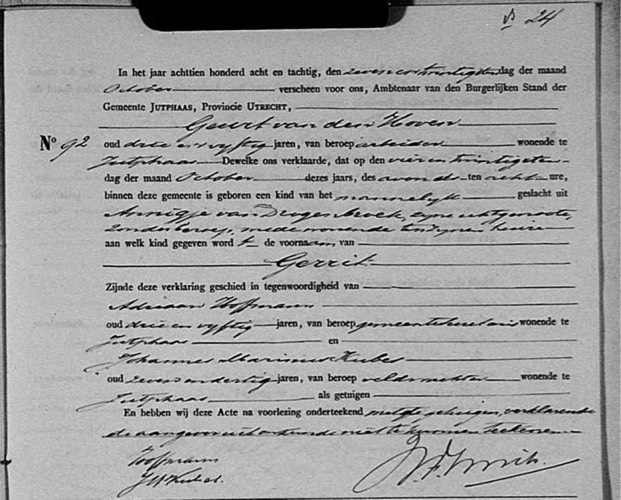 24
In het jaar achttien honderd acht en tachtig, den zevenentwintigsten dag der maand
October verscheen voor ons, Ambtenaar van den Burgerlijken Stand der
Gemeente JUTPHAAS, Provincie UTRECHT,
Geurt van den Hoven
No 92
oud drie en vyftig jaren, van beroep arbeider wonende te
Jutphaas Dewelke ons verklaarde, dat op den vier en twintigsten
dag der maand October dezes jaars, des avonds ten acht ure,
binnen deze gemeente is geboren een kind van het mannelyk geslacht uit
Annigje van Drogenbroek, zyne echtgenoote,
zonder beroep, mede wonende
aan welk kind gegeven word t de voornaam van
Gerrit
Zijnde deze verklaring geschied in tegenwoordigheid van
Adriaan Hofmann
oud drie en vyftig jaren, van beroep gemeentesecretaris wonende te
Jutphaas en
Johannes Marinus Kubes
oud jaren, van beroep veldwachter wonende te
Jutphaas als getuigen
En hebben wij deze Acte na voorlezing onderteekend met de getuigen, verklarende
de aangever niet te kunnen teekenen
Hofmann
JM Kubes